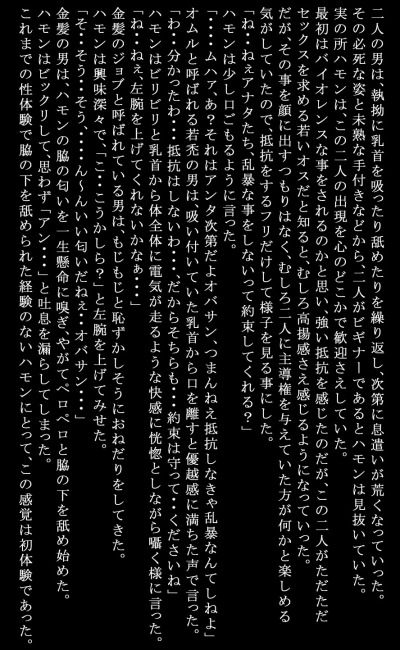 二人の男は、執拗に乳首を吸ったり舐めたりを繰り返し、次第に息遣いが荒くなっていった。
その必死な姿と未熟な手付きなどから、二人がビギナーであるとハモンは見抜いていた。
実の所ハモンは、この二人の出現を心のどこかで歓迎さえしていた。
最初はバイオレンスな事をされるのかと思い、強い抵抗を感じたのだがこの二人がただただ
セックスを求める若いオスだと知ると、むしろ高揚感さえ感じるようになっていった。
だが、その事を顔に出すつもりはなく、むしろ二人に主導権を与えていた方が何かと楽しめる
気がしていたので、抵抗をするフリだけして様子を見る事にした。
「ね・・ねぇアナタたち、乱暴な事をしないって約束してくれる？」
ハモンは少し口ごもるように言った。
「・・・・ムハァ、あ？それはアンタ次第だよオバサン、つまんねえ抵抗しなきゃ乱暴なんてしねよ」
オムルと呼ばれる若禿の男は、吸い付いていた乳首から口を離すと優越感に満ちた声で言った。
「わ・・分かったわ・・・抵抗はしないわ・・・、だからそちらも・・・約束は守って・・くださいね」
ハモンはビリビリと乳首から体全体に電気が走るような快感に恍惚としながら囁く様に言った。
「ね・・ねぇ、左腕を上げてくれないかなぁ・・・」
金髪のジョブと呼ばれている男は、もじもじと恥ずかしそうにおねだりをしてきた。
ハモンは興味深々で、「こ・・こうかしら？」と左腕を上げてみせた。
「そ・・そう・・そう、・・・・ん〜んいい匂いだねぇ・・オバサン・・・」
金髪の男は、ハモンの脇の匂いを一生懸命に嗅ぎ、やがてペロペロと脇の下を舐め始めた。
ハモンはビックリして、思わず「アン・・・」と吐息を漏らしてしまった。
これまでの性体験で脇の下を舐められた経験のないハモンにとって、この感覚は初体験であった。